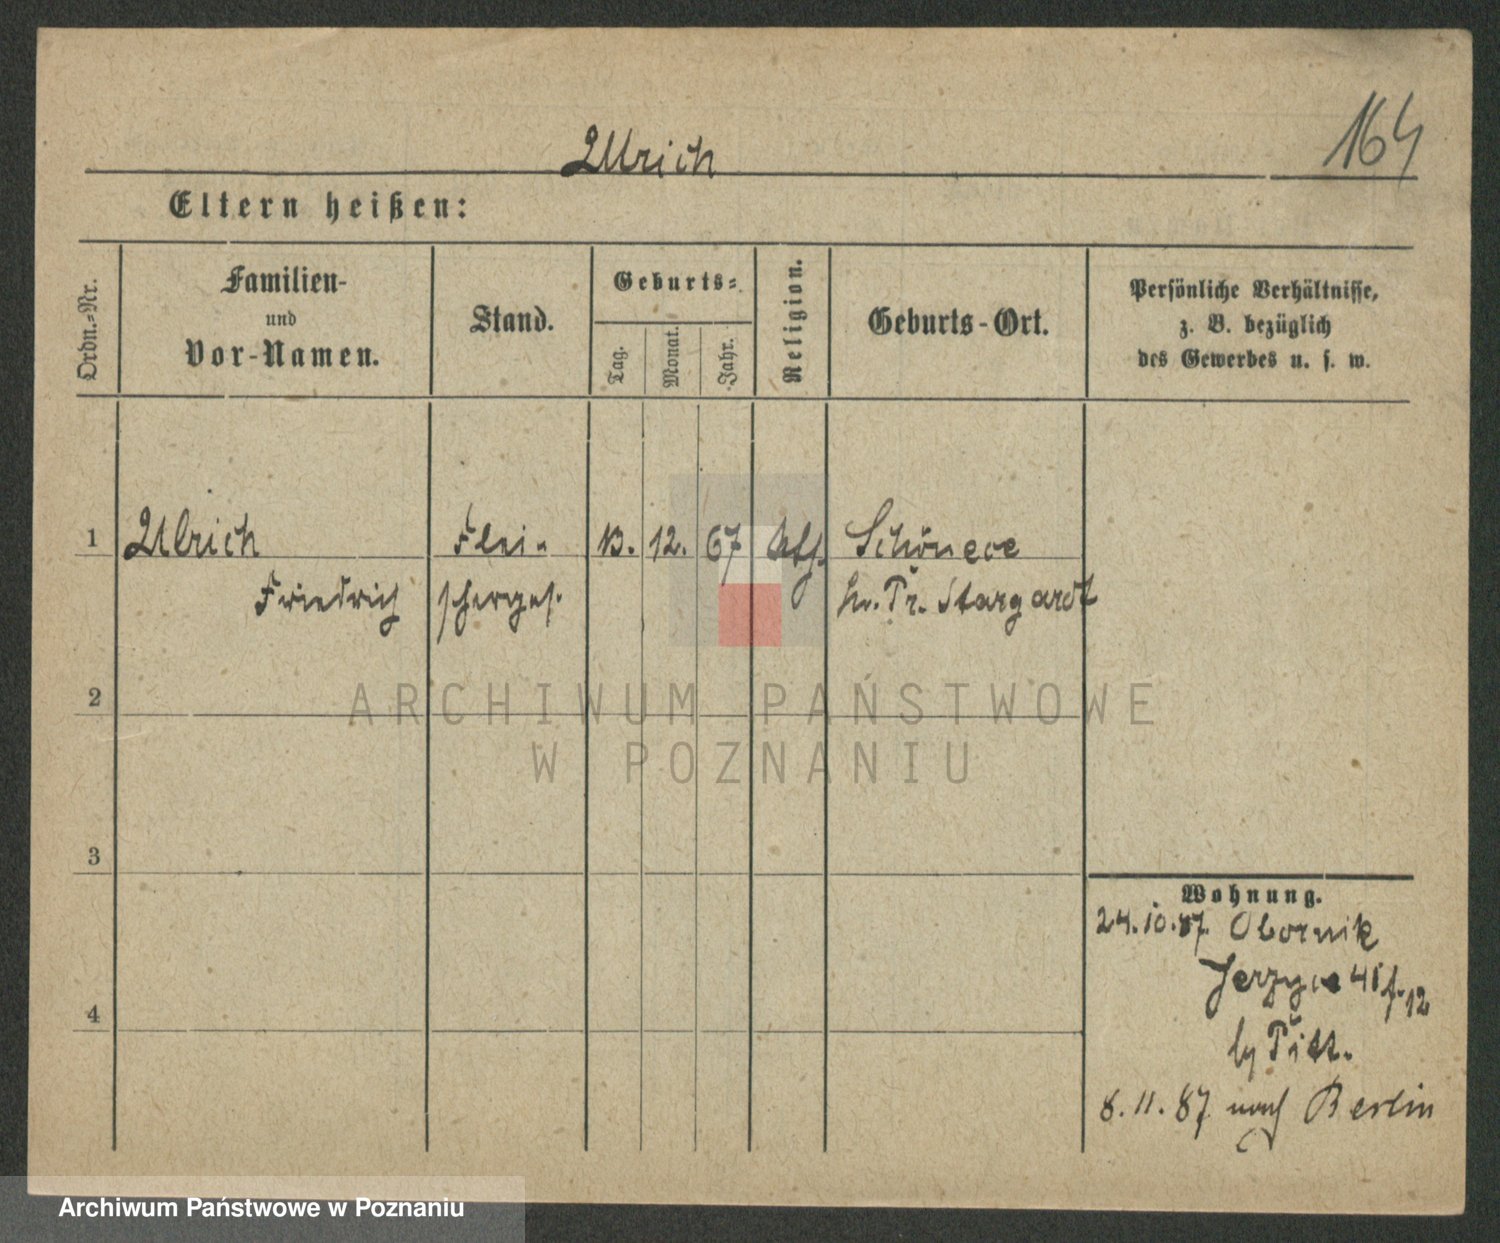 Ulrich
164
Eltern heißen:
Ordn.-Nr.
Familien-
und
Vor-Namen.
Stand.
Geburts-
Tag.
Monat.
Jahr.
Religion.
Geburts-Ort.
Persönliche Verhältnisse,
z. B. bezüglich
des Gewerbes u. s. w.
1
Ulrich
Flei-
13. 12. 67
Schöneck
Friedrich
scherges.
Kr. Pr. Stargardt
2
3
4
Wohnung.
24.10.87. Obornik
Jerzyce 41 f. 12
by
8.11.87 nach Berlin
ARCHIWUM PAŃSTWOWE
W POZNANIU
Archiwum Państwowe w Poznaniu